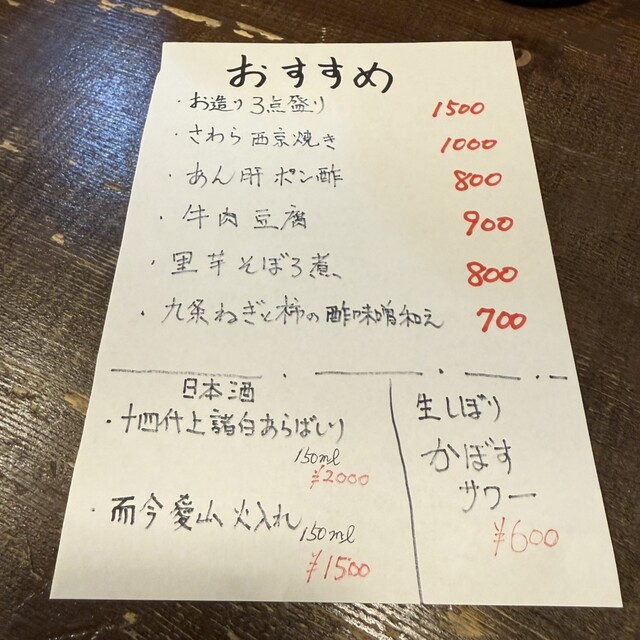 おすすめ
・お造り3点盛り 1500
・さわら西京焼き 1000
・あん肝ポン酢 800
・牛肉豆腐 900
・里芋そぼろ煮 800
・九条ねぎと柿の酢味噌和え 700
日本酒
・十四代上諸白あらばしり
150ml
¥2000
・而今愛山火入れ
150ml
¥1500
生しぼり
かぼす
サワー
¥600